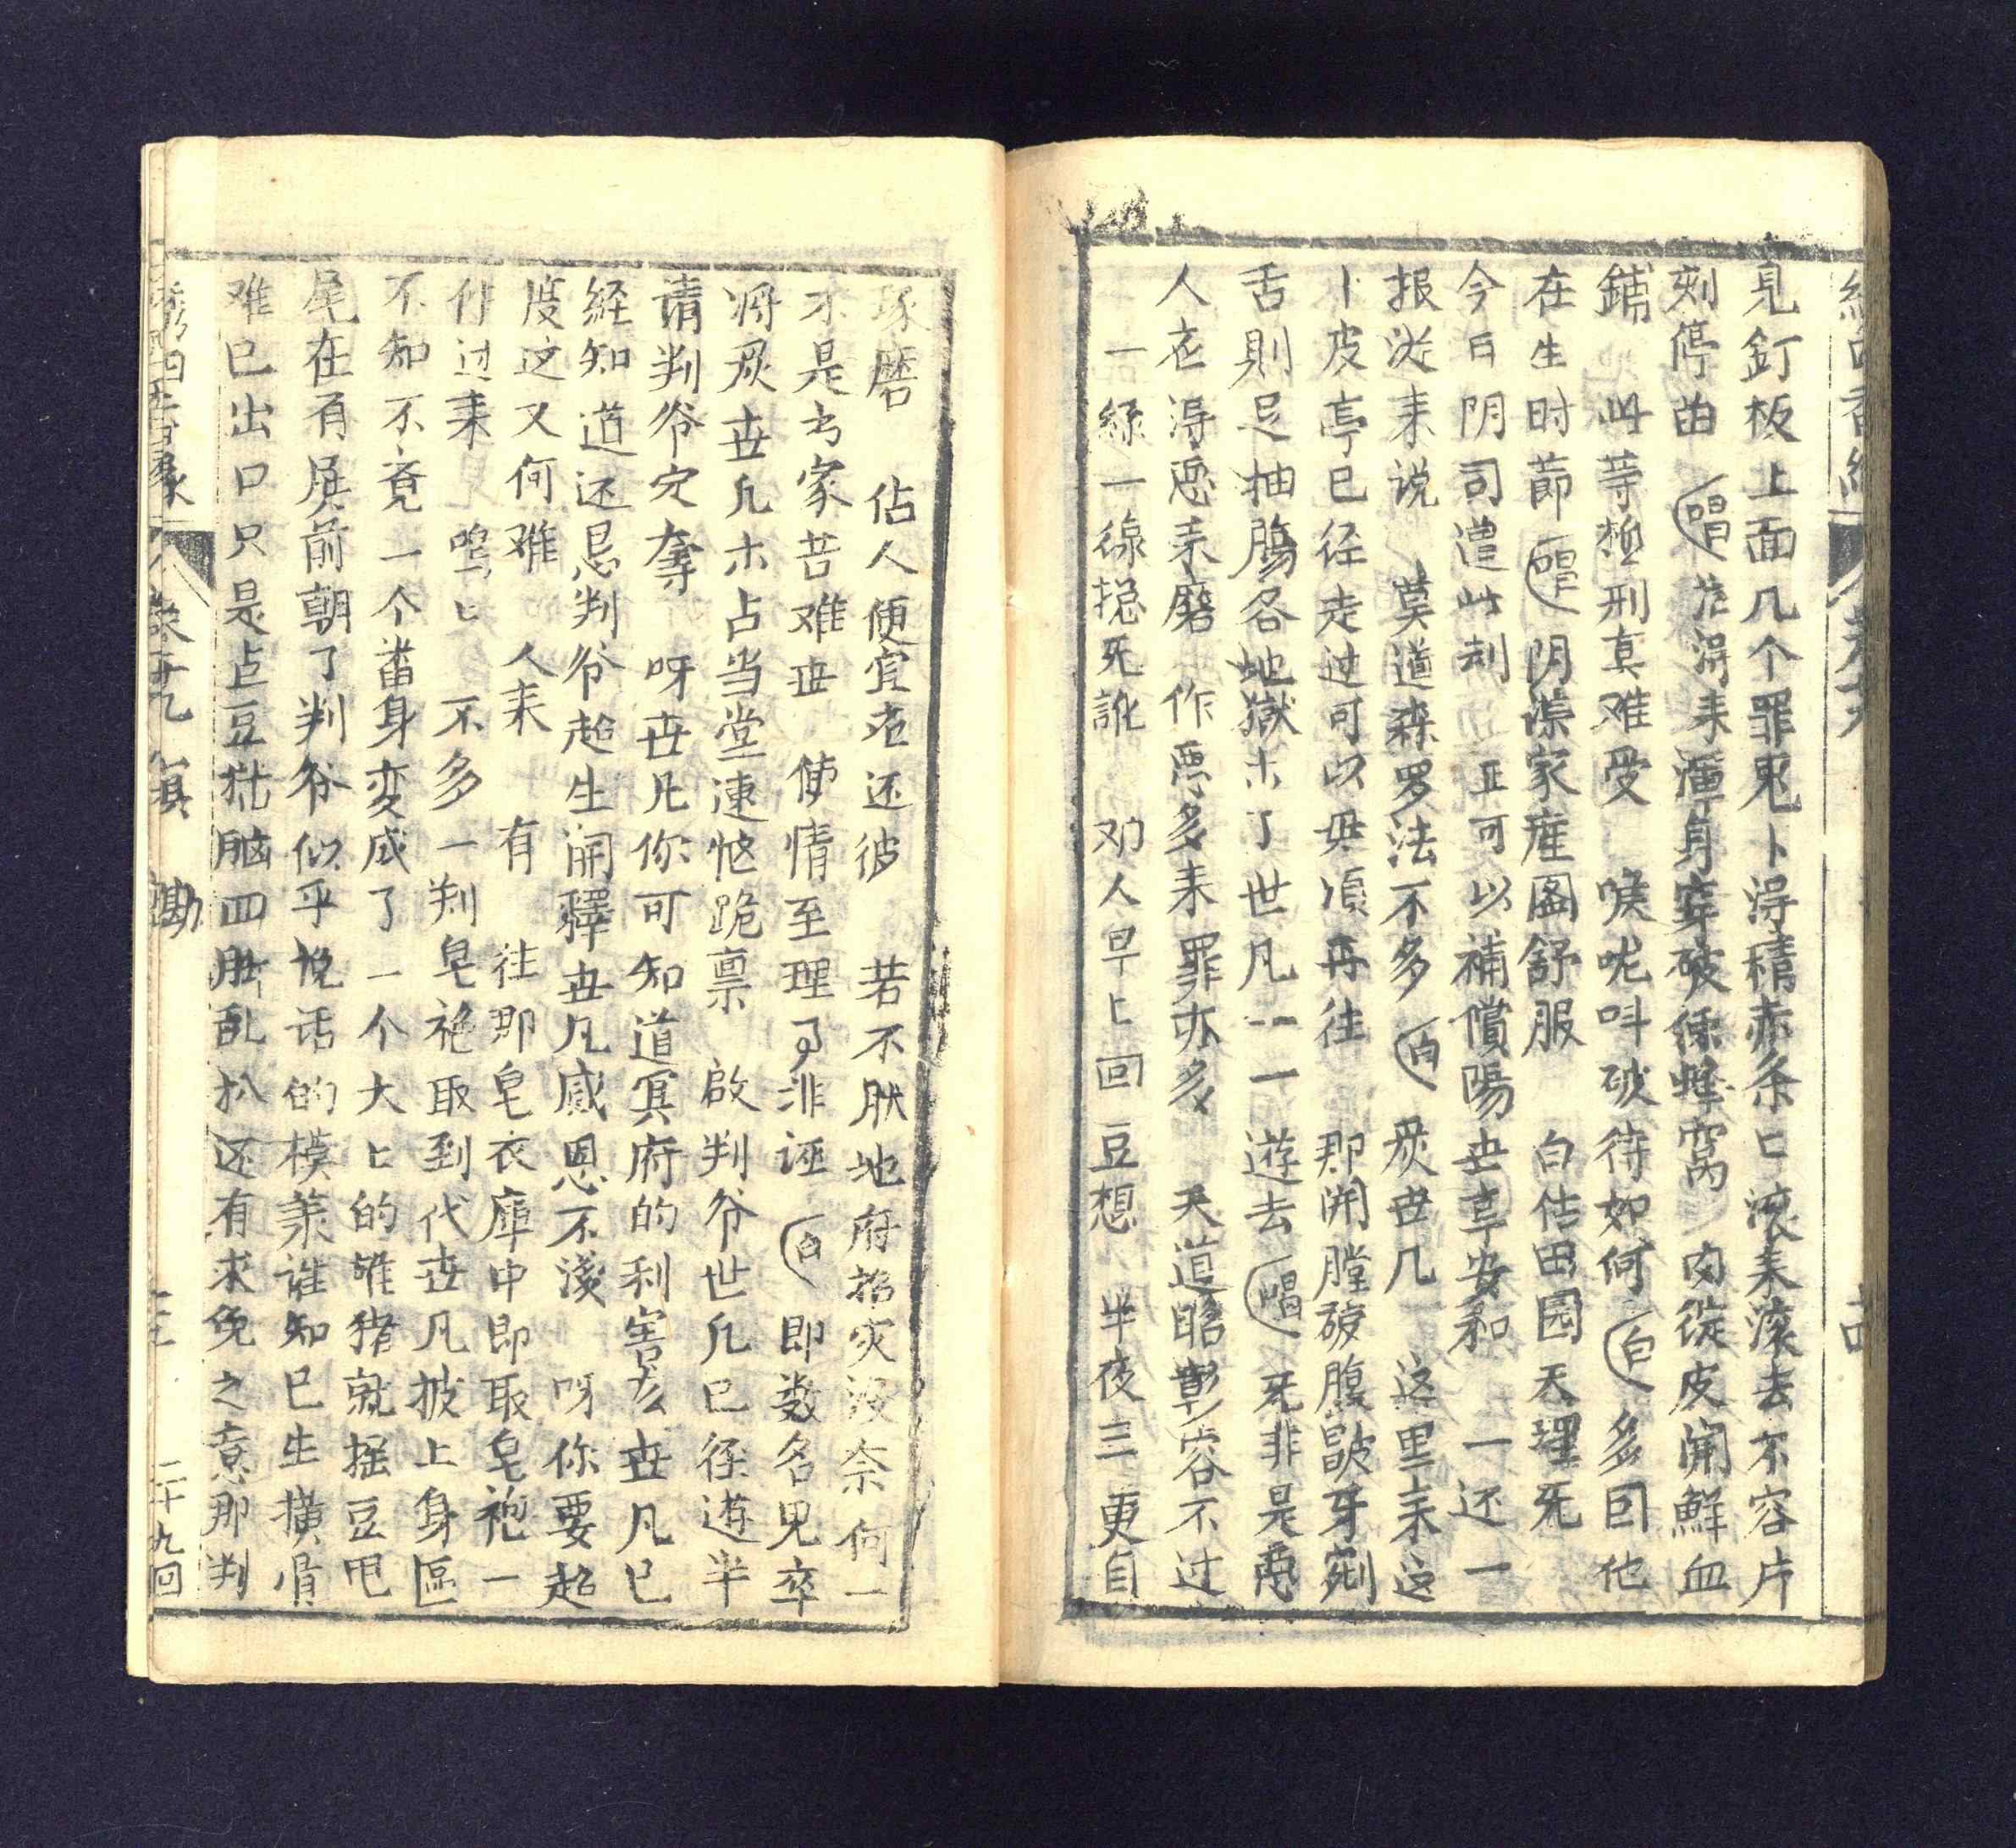 見釘板上面几个罪鬼卜得精赤条匕滚来滚去不容片
刻停留 唱 滚得来渾身穿破像蜂窩 肉綻皮開鮮血
鋪 此等極刑真难受 喉咙呌破待如何 白 多回他
在生时莭 唱 阴謀家産圖舒服 白佔田园天理死
今日阴司遣此刦 正可以補償陽世享安和 一还一
报従来说 莫道森罗法不多 白 炭世几 这里来这
卜皮亭已径走过可以毋須再往 那開膛破腹敲牙剜
舌則是抽腸各地獄木了世凡一一遊去 唱 死非是悪
人在得恶来磨 作悪多来罪亦多 天道昭彰容不过
一絲一線捴死訛 劝人早匕回豆想 半夜三更自
琢磨 佔人便宜在还彼 若不肰地府招灾没奈何一
不是方家苦难世 使情至理可非誣 白 即数名鬼卒
将炭世几木占当堂連忙跪禀 啟判爷世几已径遊半
请判爷定奪 呀世凡你可知道冥府的利害么世凡已
経知道还恳判爷超生開釋世凡感恩不淺 呀你要超
度这又何难 人来 有 往那皂衣庫中即取皂袍一
件过来 噁匕 不多一刻皂袍取到代世凡披上身區
不知不竟一个畨身変成了一个大匕的雄猪就摇豆甩
尾在有屏前朝了判爷似乎悦话的模羕谁知已生横骨
难已出口只是点豆狌脑四肚乱扒还有求免之意那判
二十九回